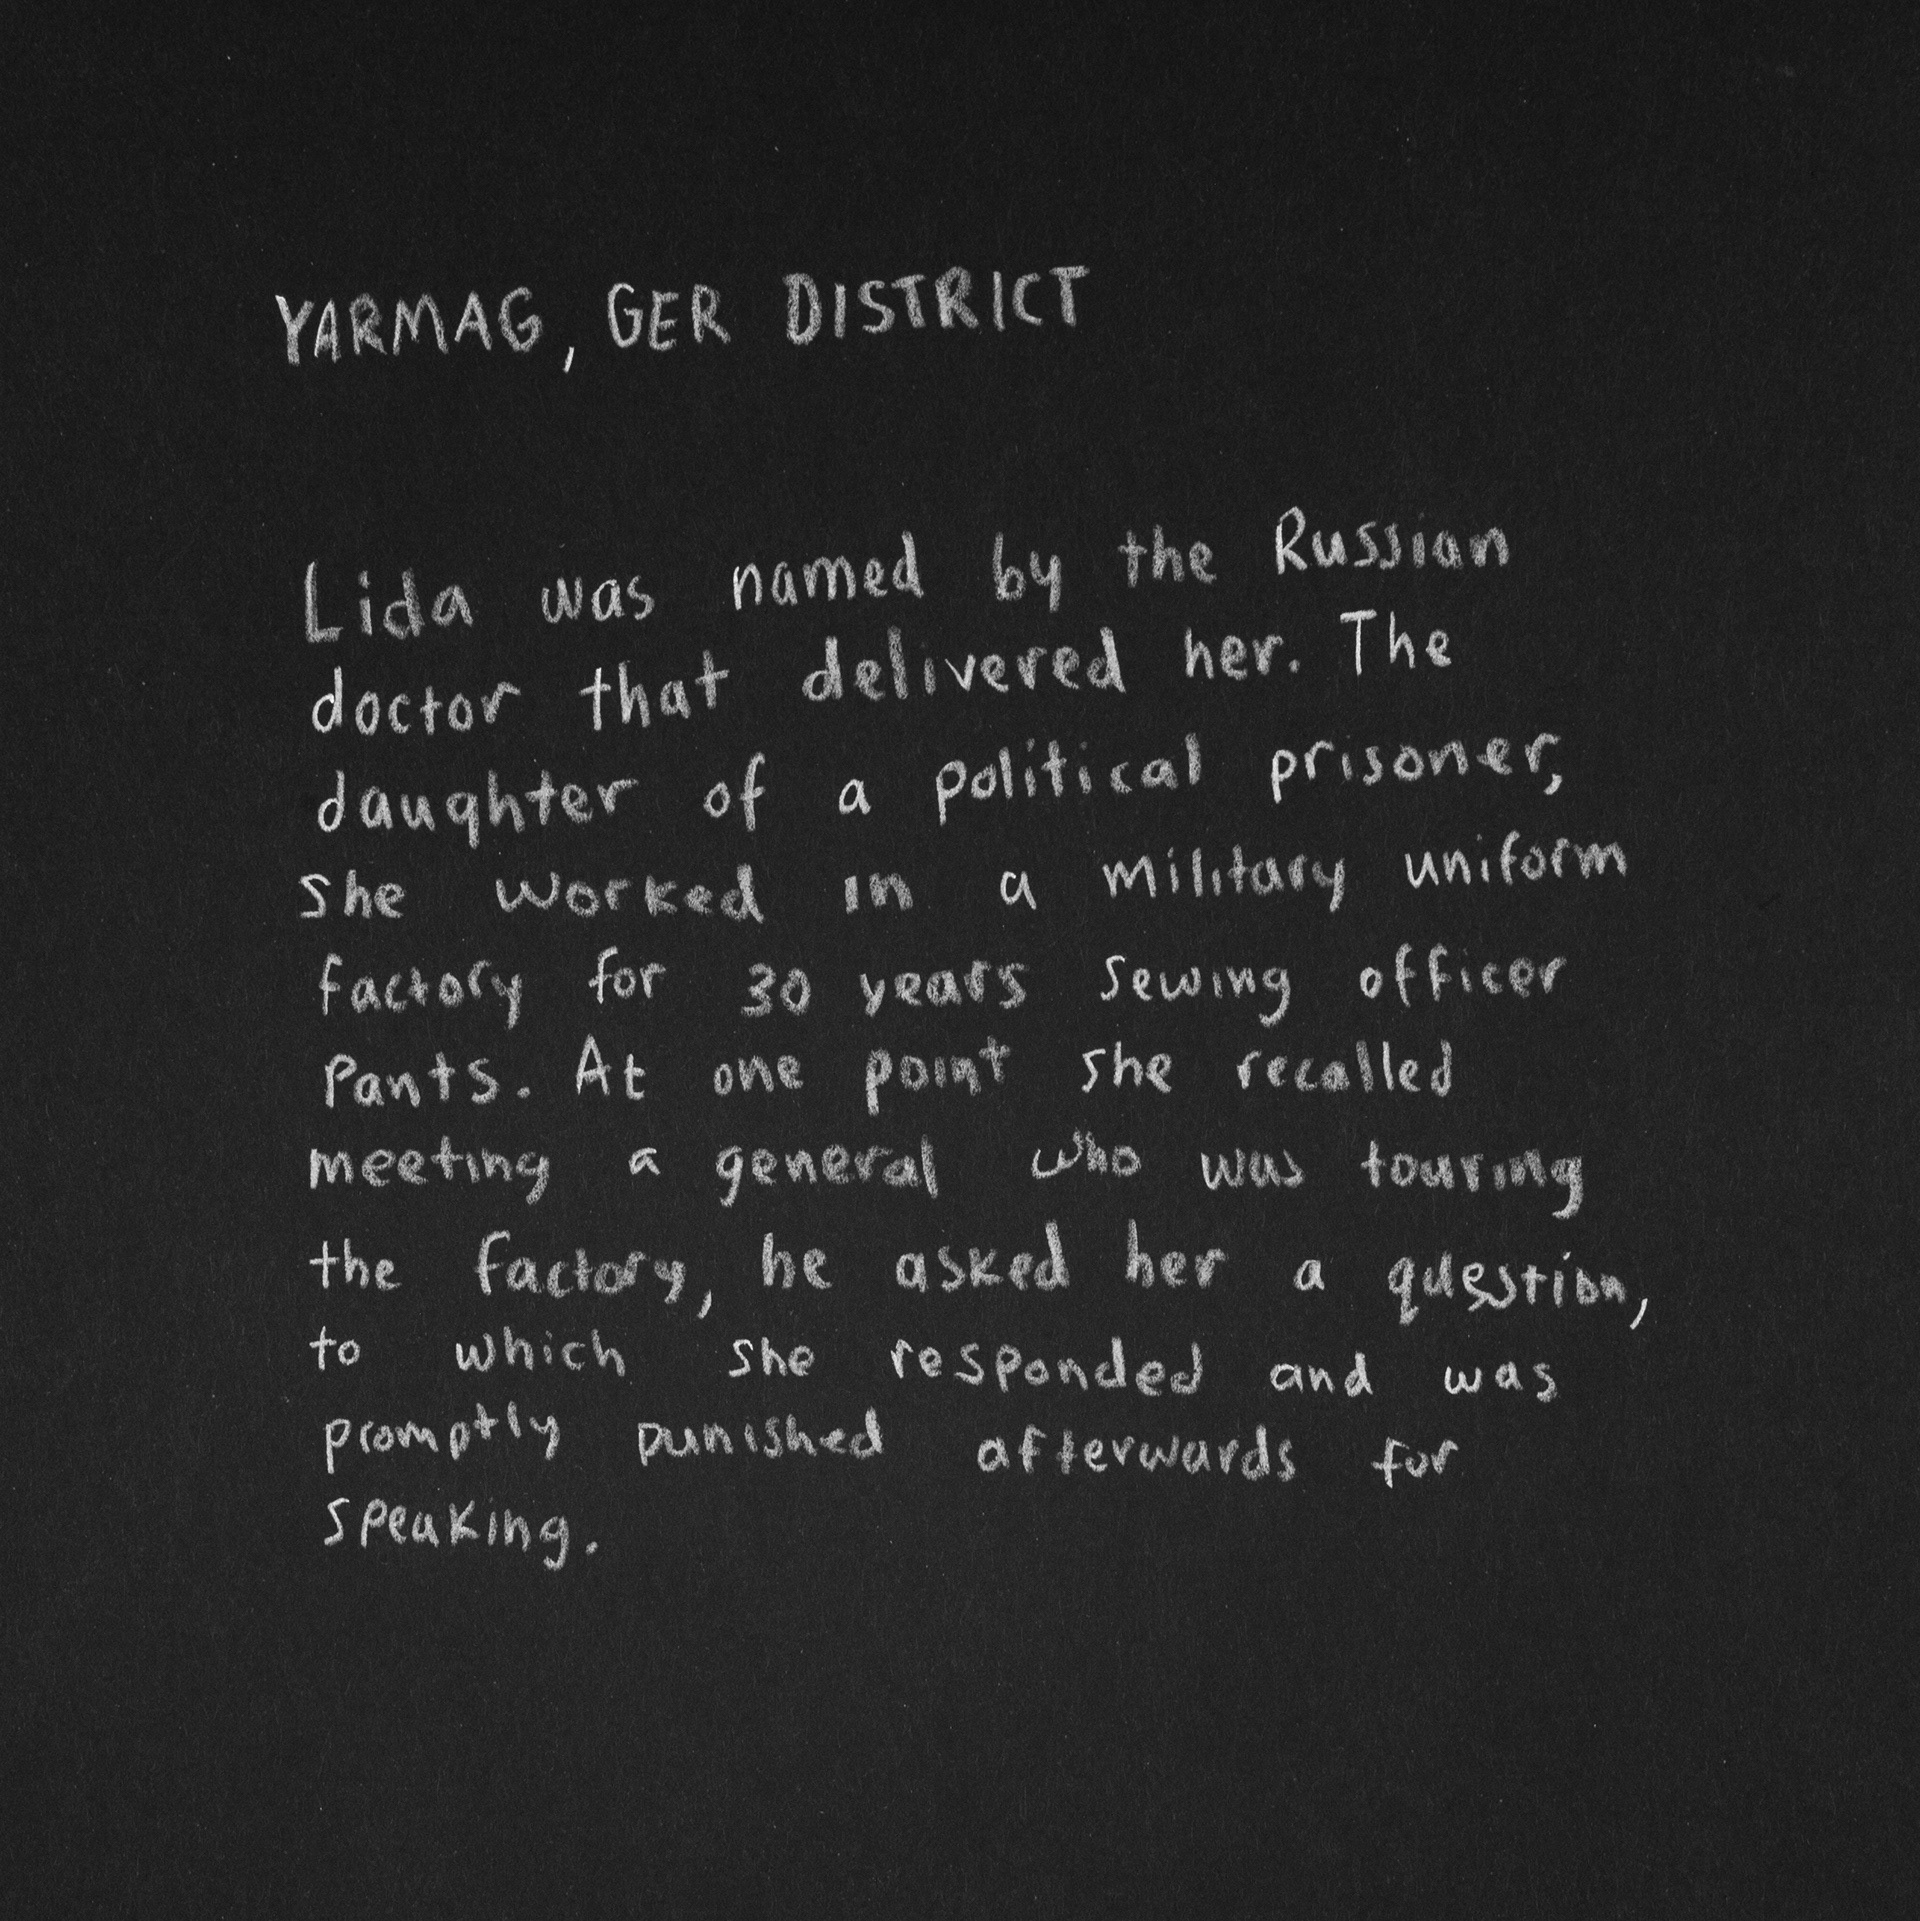 YARMAG, GER DISTRICT
Lida was named by the Russian
doctor that delivered her. The
daughter of a political prisoner,
she worked in a military uniform
factory for 30 years sewing officer
pants. At one point she recalled
meeting a general who was touring
the factory, he asked her a question,
to which she responded and was
promptly punished afterwards for
speaking.